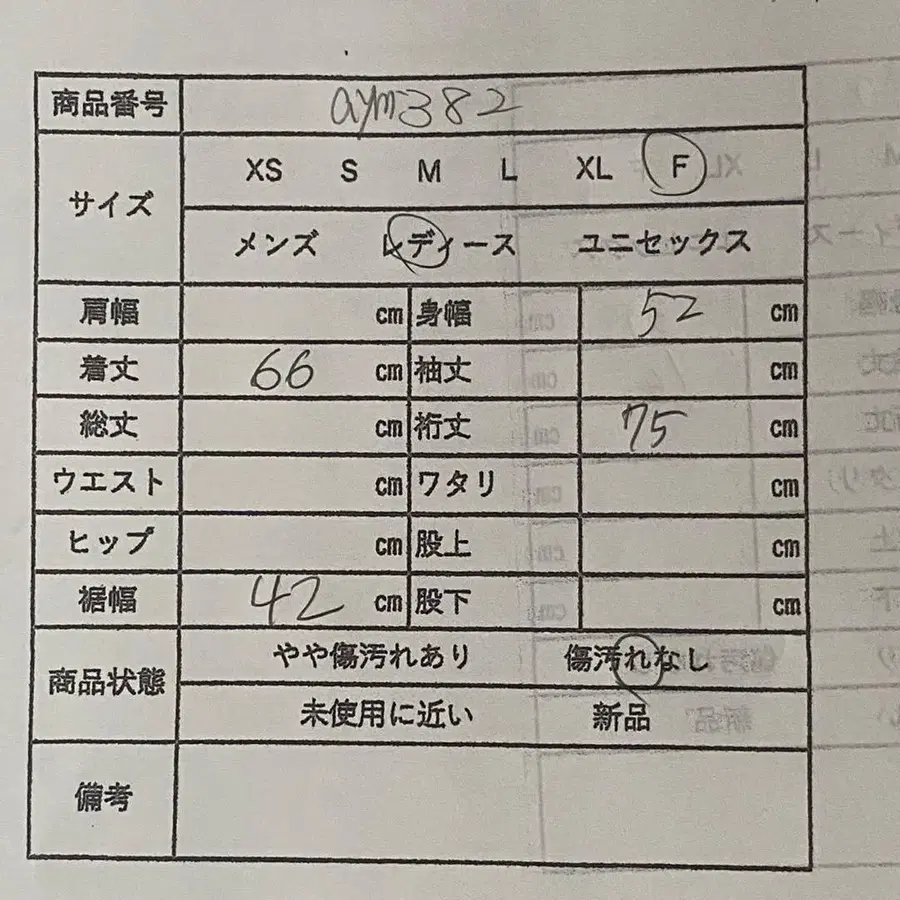 商品番号 aym382
サイズ XS S M L XL F
メンズ レディース ユニセックス
肩幅 cm 身幅 52 cm
着丈 66 cm 袖丈 cm
総丈 cm 裄丈 75 cm
ウエスト cm ワタリ cm
ヒップ cm 股上 cm
裾幅 42 cm 股下 cm
商品状態 やや傷汚れあり 傷汚れなし
未使用に近い 新品
備考